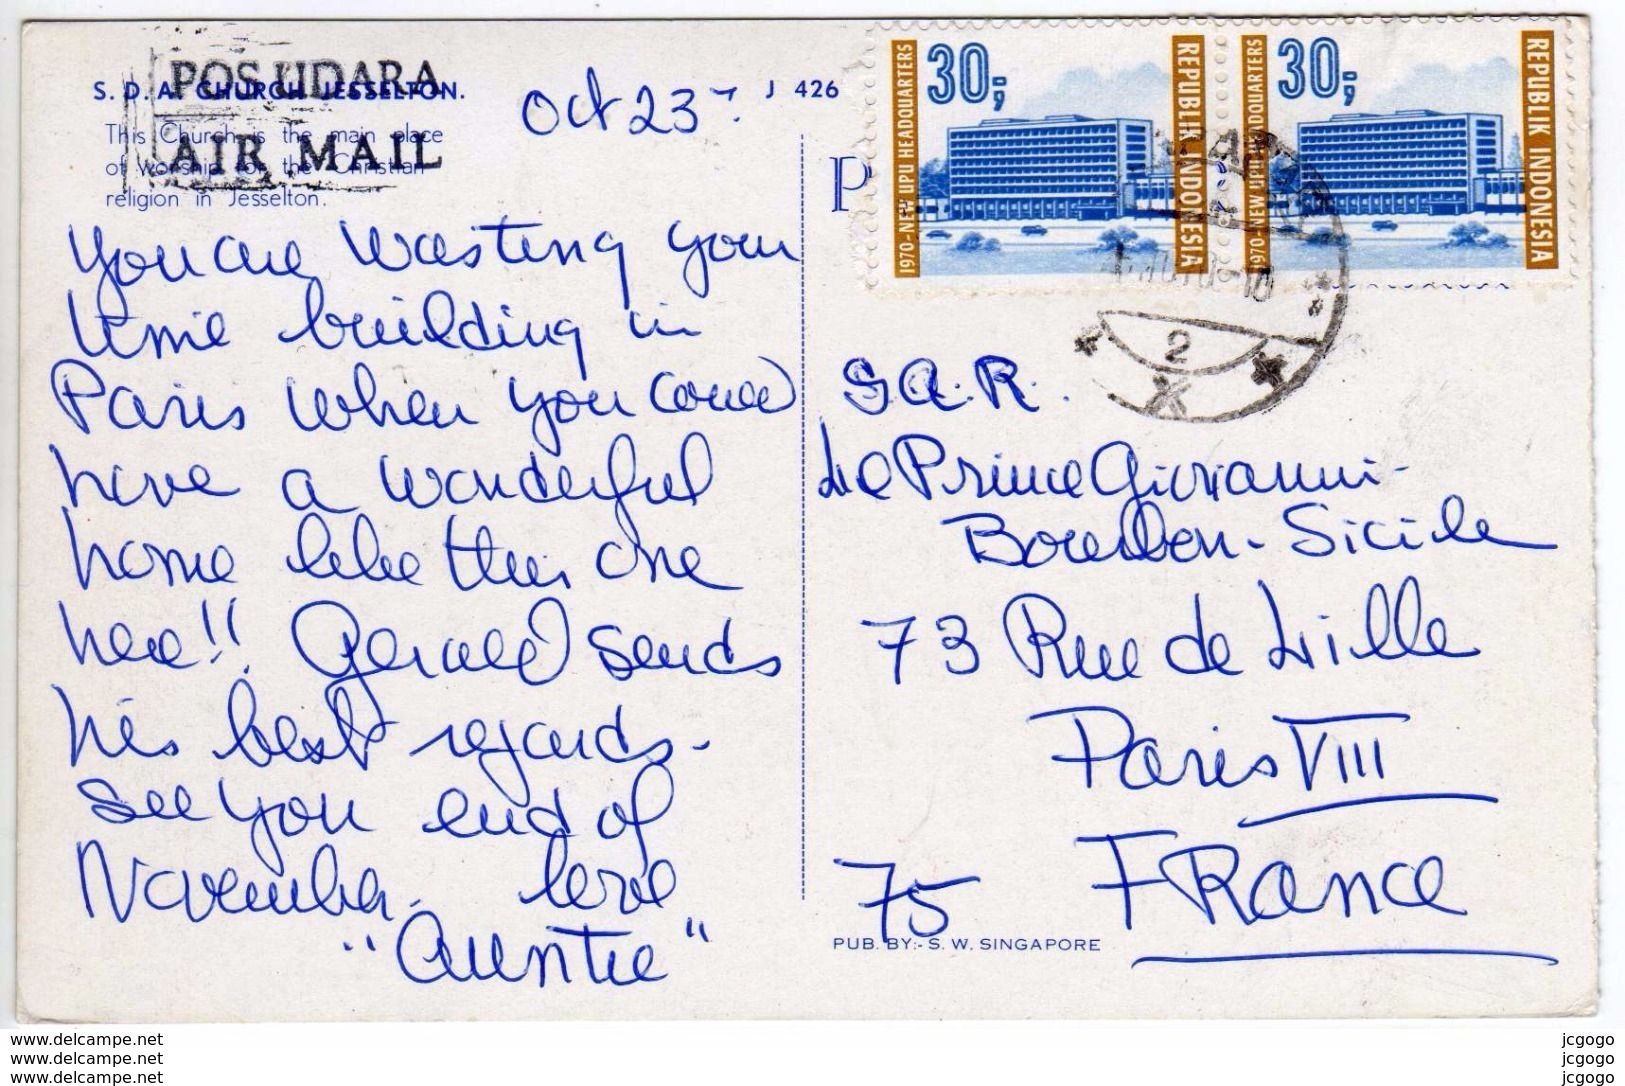 POS UDARA
AIR MAIL
S. D. A. CHURCH JESSELTON.
This Church is the main place
of worship for the Christian
religion in Jesselton.
Oct 23
J 426
P
You are wasting your
time building in
Paris when you could
have a wonderful
home like this one
here!! Gerald sends
his best regards-
See you end of
November. love
"Auntie"
30;
REPUBLIK INDONESIA
1970-NEW UPU HEADQUARTERS
30;
REPUBLIK INDONESIA
1970-NEW UPU HEADQUARTERS
2
S.A.R.
Le Prince Giovanni-
Bourbon-Sicile
73 Rue de Lille
Paris VIII
75 FRANCE
PUB. BY:- S. W. SINGAPORE
www.delcampe.net
www.delcampe.net
www.delcampe.net
jcgogo
jcgogo
jcgogo